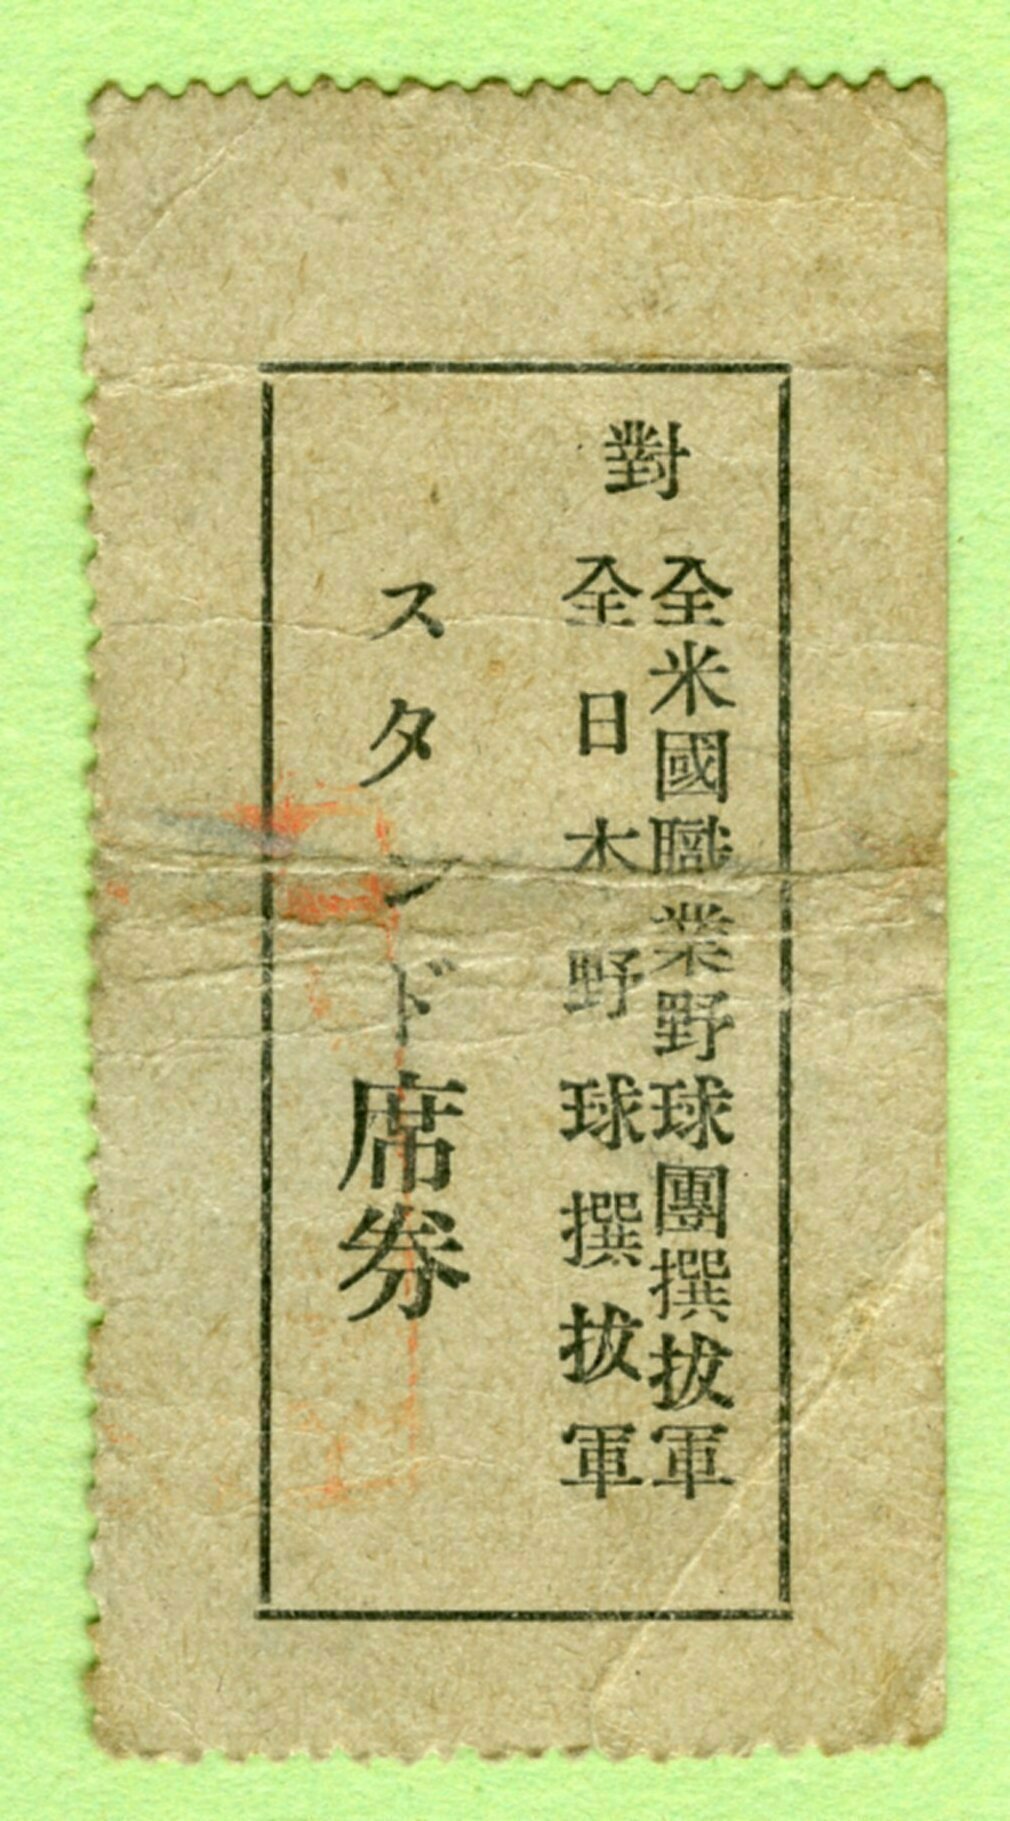 對
全米國職業野球團撰拔軍
全日本野球撰拔軍
スタンド席券